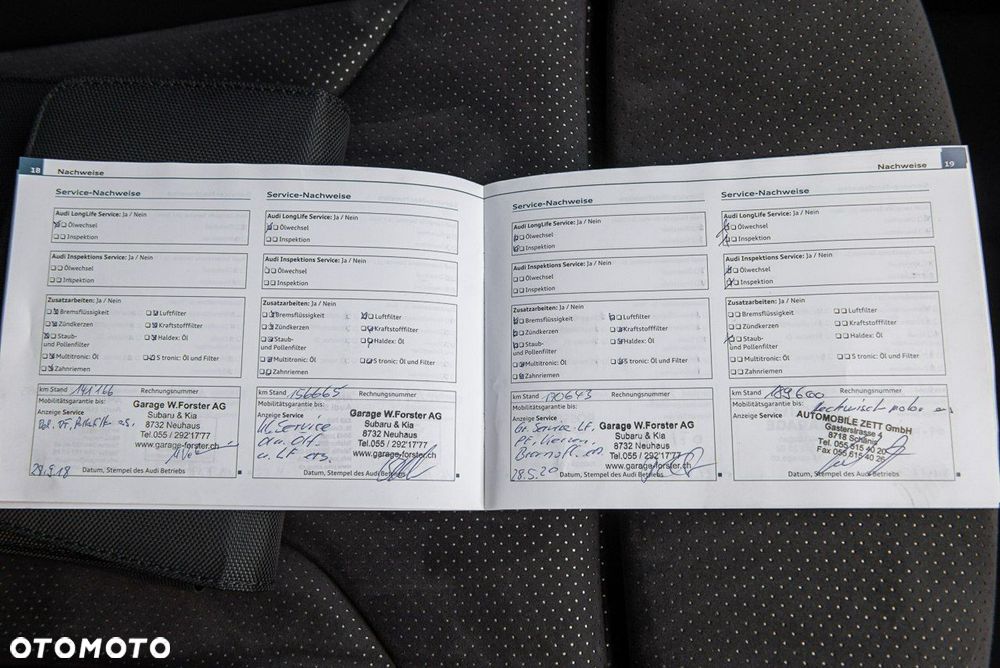 18
Nachweise
Service-Nachweise
Audi LongLife Service: Ja / Nein
Ölwechsel
Inspektion
Audi Inspektions Service: Ja / Nein
Ölwechsel
Inspektion
Zusatzarbeiten: Ja / Nein
Bremsflüssigkeit
Luftfilter
Zündkerzen
Kraftstofffilter
Staub-
und Pollenfilter
Haldex: Öl
Multitronic: Öl
S tronic: Öl und Filter
Zahnriemen
km Stand 141166
Rechnungsnummer
Mobilitätsgarantie bis:
Anzeige Service
Garage W.Forster AG
Subaru & Kia
8732 Neuhaus
Tel.055 / 292'17'77
www.garage-forster.ch
28.9.18
Datum, Stempel des Audi Betriebs
Service-Nachweise
Audi LongLife Service: Ja / Nein
Ölwechsel
Inspektion
Audi Inspektions Service: Ja / Nein
Ölwechsel
Inspektion
Zusatzarbeiten: Ja / Nein
Bremsflüssigkeit
Luftfilter
Zündkerzen
Kraftstofffilter
Staub-
und Pollenfilter
Haldex: Öl
Multitronic: Öl
S tronic: Öl und Filter
Zahnriemen
km Stand 156665
Rechnungsnummer
Mobilitätsgarantie bis:
Anzeige Service
Kl. Service
u. LF ers.
Garage W.Forster AG
Subaru & Kia
8732 Neuhaus
Tel.055 / 292'17'77
www.garage-forster.ch
Datum, Stempel des Audi Betriebs
Nachweise
19
Service-Nachweise
Audi LongLife Service: Ja / Nein
Ölwechsel
Inspektion
Audi Inspektions Service: Ja / Nein
Ölwechsel
Inspektion
Zusatzarbeiten: Ja / Nein
Bremsflüssigkeit
Luftfilter
Zündkerzen
Kraftstofffilter
Staub-
und Pollenfilter
Haldex: Öl
Multitronic: Öl
S tronic: Öl und Filter
Zahnriemen
km Stand 170643
Rechnungsnummer
Mobilitätsgarantie bis:
Anzeige Service
Gr. Service LF,
Garage W.Forster AG
Subaru & Kia
8732 Neuhaus
Tel.055 / 292'17'77
www.garage-forster.ch
28.5.20
Datum, Stempel des Audi Betriebs
Service-Nachweise
Audi LongLife Service: Ja / Nein
Ölwechsel
Inspektion
Audi Inspektions Service: Ja / Nein
Ölwechsel
Inspektion
Zusatzarbeiten: Ja / Nein
Bremsflüssigkeit
Luftfilter
Zündkerzen
Kraftstofffilter
Staub-
und Pollenfilter
Haldex: Öl
Multitronic: Öl
S tronic: Öl und Filter
Zahnriemen
km Stand 189600
Rechnungsnummer
Mobilitätsgarantie bis:
Anzeige Service
AUTOMOBILE ZETT GmbH
Gasterstrasse 4
8718 Schänis
Tel. 055 615 40 20
Fax 055 615 40 26
Datum, Stempel des Audi Betriebs
OTOMOTO